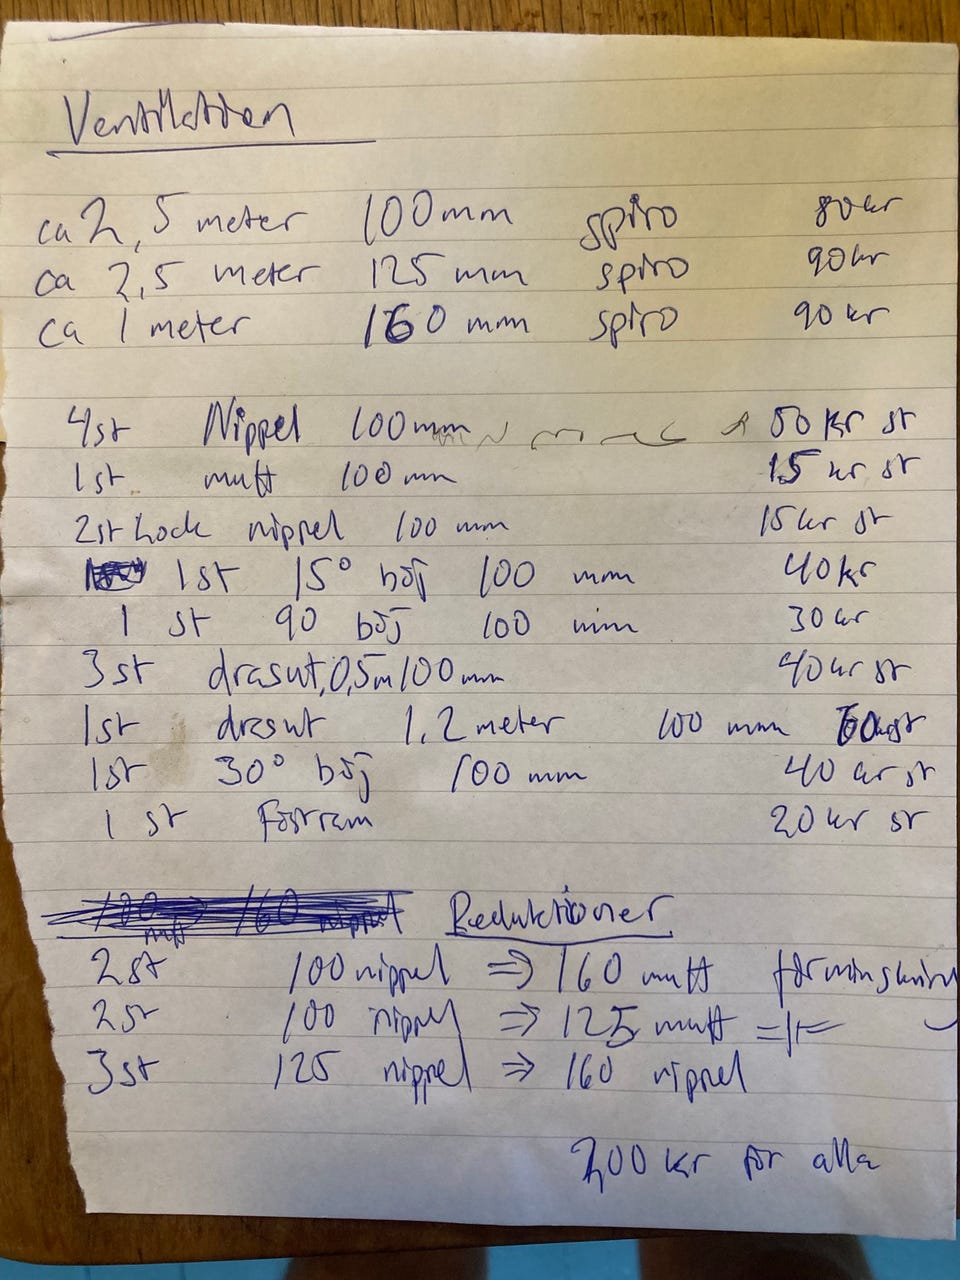 Ventilation
ca 2,5 meter 100mm spiro 80kr
ca 2,5 meter 125 mm spiro 90kr
ca 1 meter 160 mm spiro 90 kr
4st Nippel 100mm kr st
1st muff 100mm 15 kr st
2st Lock nippel 100 mm 15kr st
1st 15° böj 100 mm 40kr
1 st 90 böj 100 mm 30kr
3 st 0,5m 100mm 40kr st
1st 1,2 meter 100 mm st
1st 30° böj 100 mm 40 kr st
1 st Fästram 20 kr st
Reduktioner
2st 100 nippel ⇒ 160 muff
2st 100 nippel ⇒ 125 muff
3st 125 nippel ⇒ 160 nippel
200 kr för alla